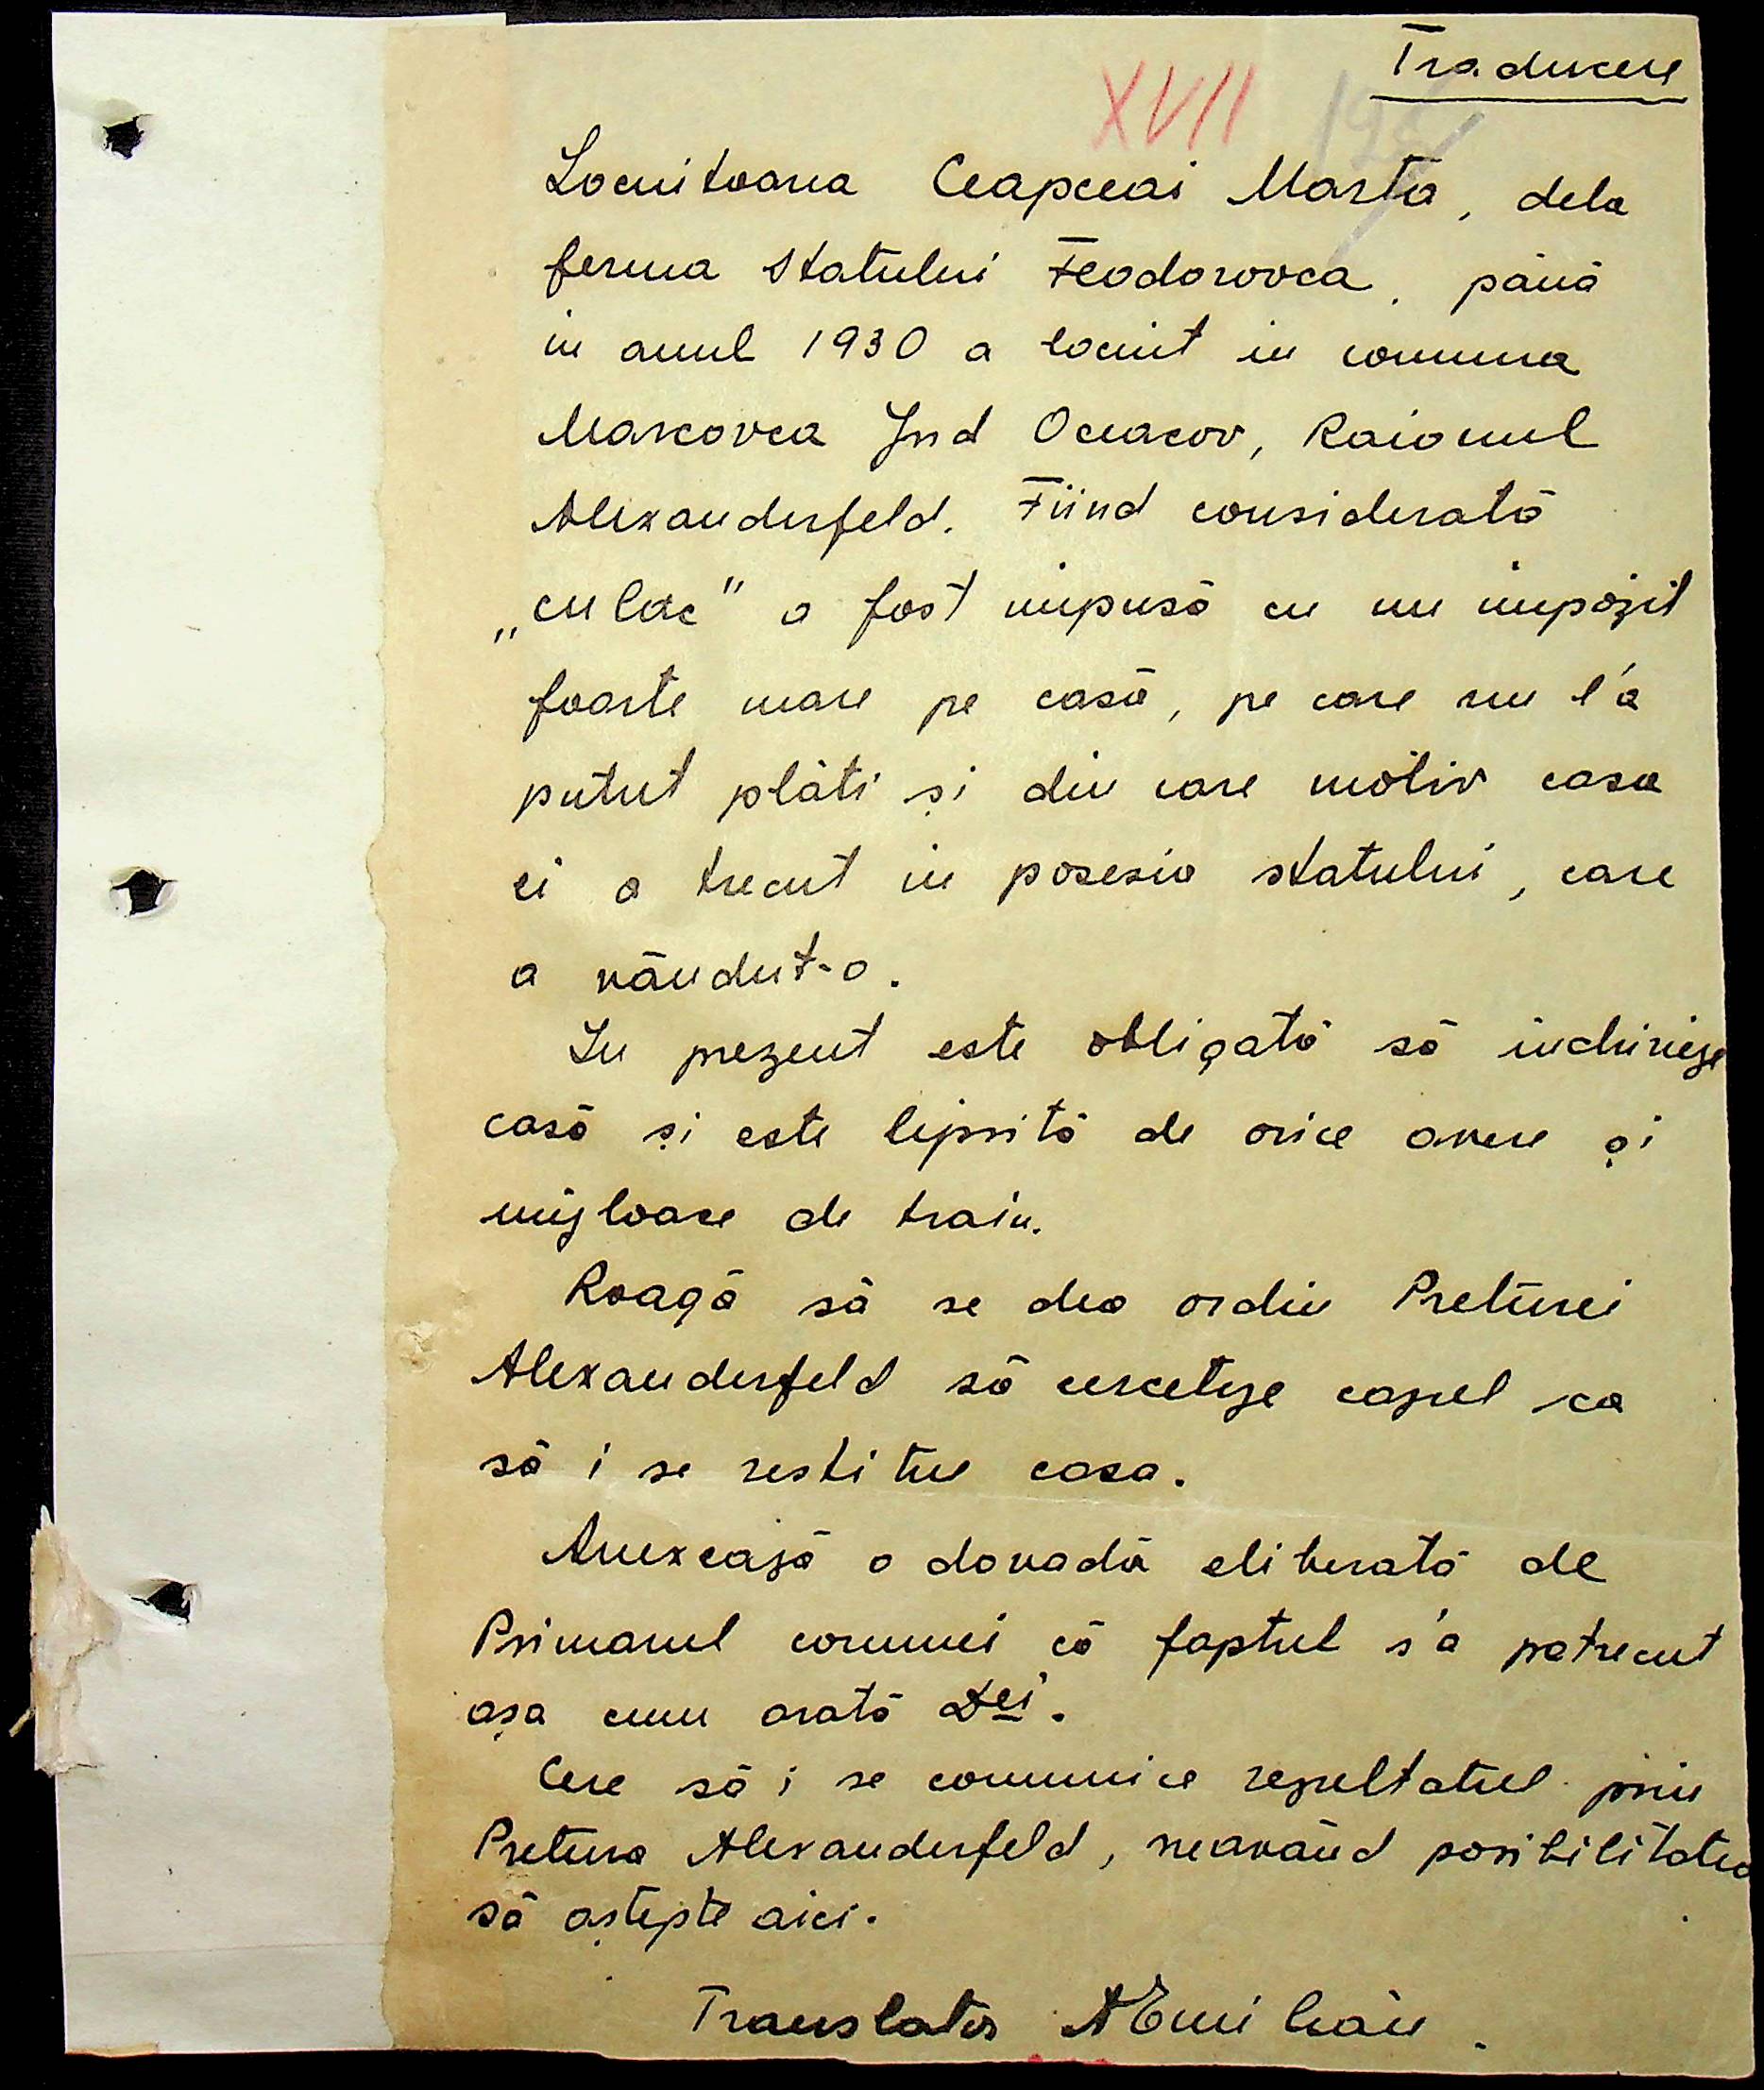 Traducere
XVII
Locuitoarea Ceapceai Marta, dela
ferma statului Feodorovca, până
in anul 1930 a locuit in comuna
Marcovca Jud Oceacov, Raionul
Alexanderfeld. Fiind considerată
„culac" a fost impusă cu un impozit
foarte mare pe casă, pe care nu l'a
putut plăti și din care motiv casa
ei a trecut in posesia statului, care
a vândut-o.
In prezent este obligată să inchirieze
casă și este lipsită de orice avere și
mijloace de traiu.
Roagă să se dea ordin Preturei
Alexanderfeld să cerceteze cazul ca
să i se restitue casa.
Anexează o dovadă eliberată de
Primarul comunei că faptul s'a petrecut
așa cum arată Dei.
Cere să i se comunice rezultatul prin
Pretura Alexanderfeld, neavând posibilitatea
să aștepte aici.
Translator AEmilian